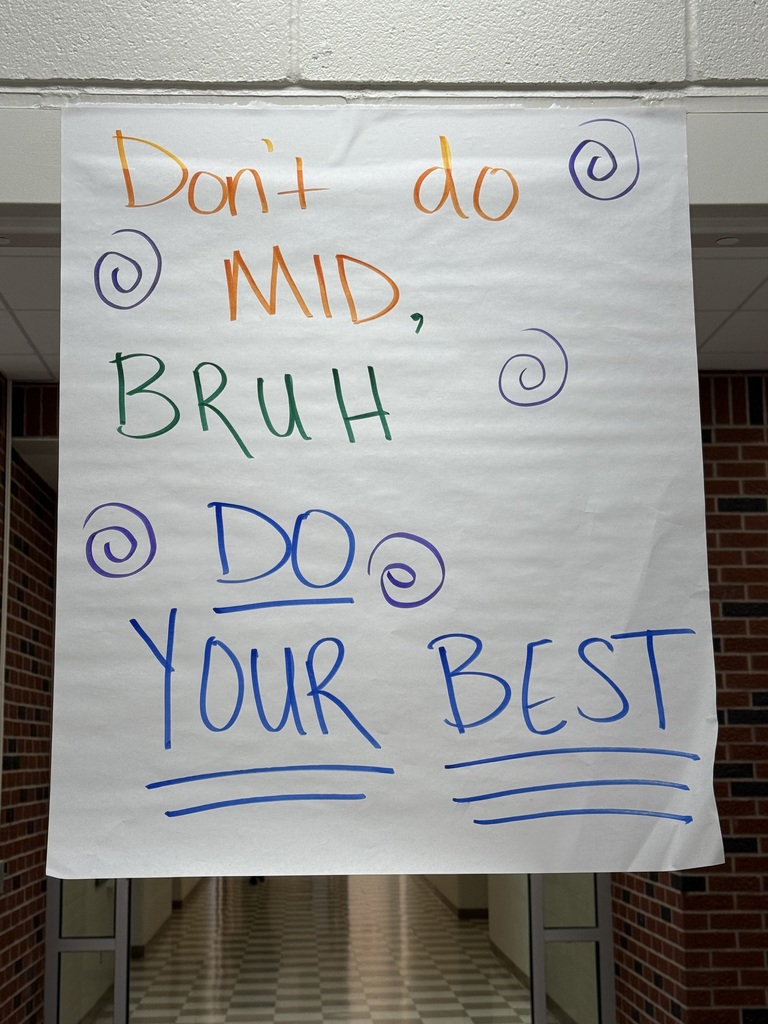 Don't do
MID,
BRUH
DO
YOUR BEST